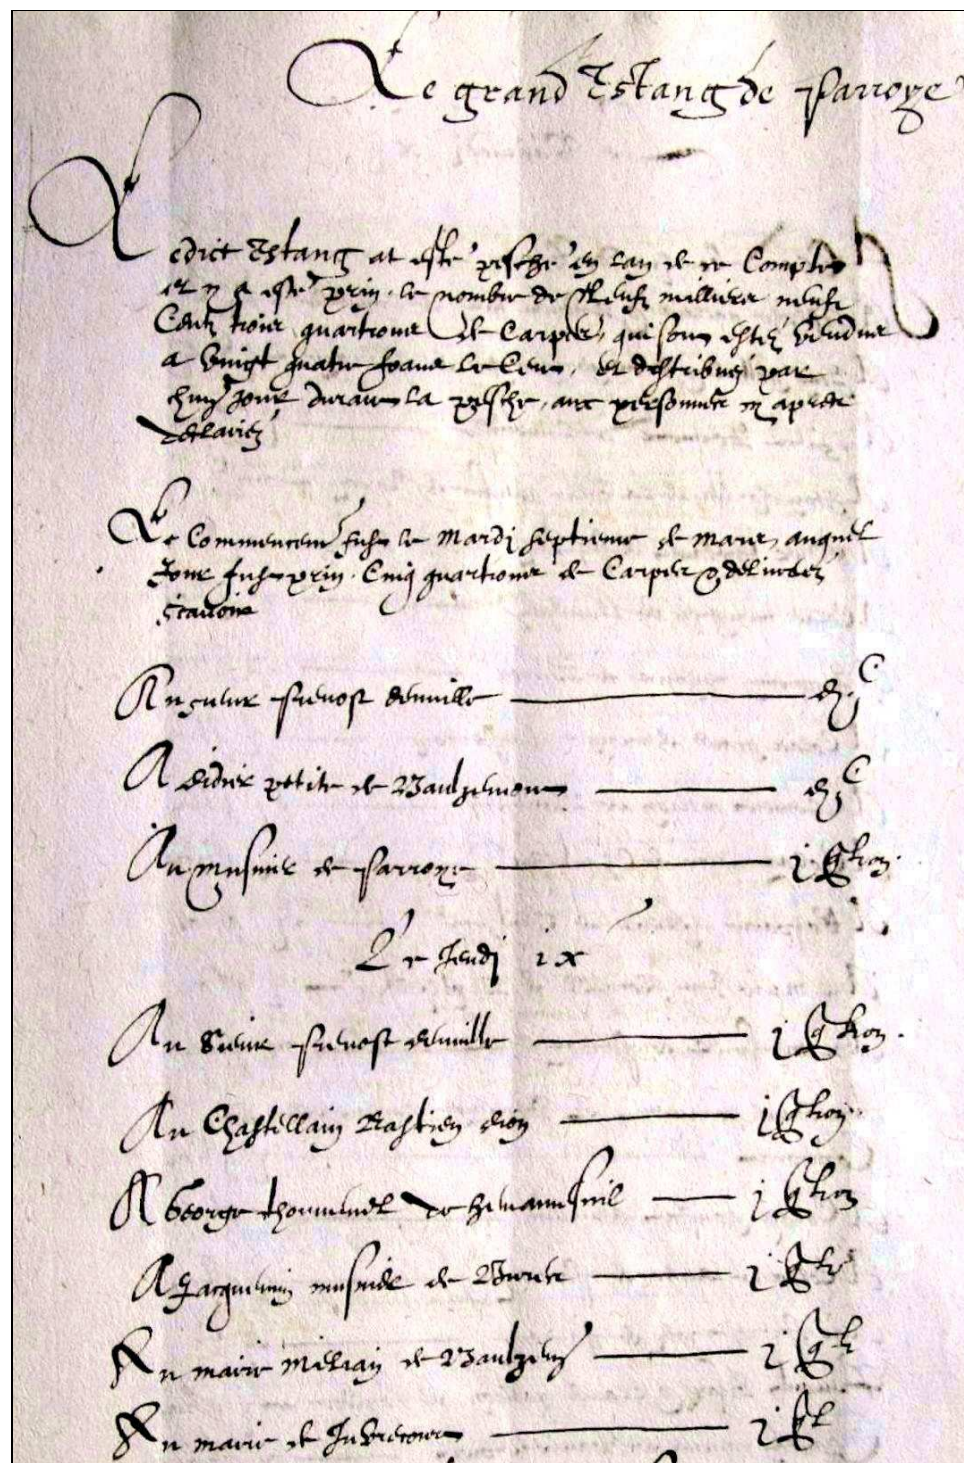 Le grand Estang de Parroye
Ledict Estang at esté pesché en lan de ce Compte
et y a esté prin le nombre de Neufz milliers neufz
Centz trois quartrons de Carpes, qui sont estéz vendus
a vingt quatre frans le Cent, et distribuez par
cinq jours durant la pesche, aux personnes cy apres
declairéz
Le Commencemt fust le Mardj septieme de mars, auquel
jour fust prin Cinq quartrons de Carpes & deliverez
scavoir
Au sieur prevost deinville ij C
A didier petit de Baulzemont ij C
Au musnier de Parroye j qtron
Le Jeudj ix
Au sieur prevost deinville j qtron
Au Chastellain Bastien j qtron
A George de henamesnil j qtron
A Jacquemin musnier de Bures j qtr
Au maire de Baulzemt j qt
Au maire de Juvrecourt j qt